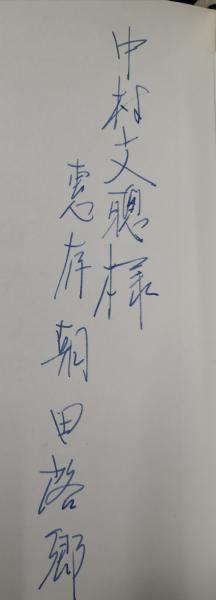 中村文聰様
恵存 朝田啓郷